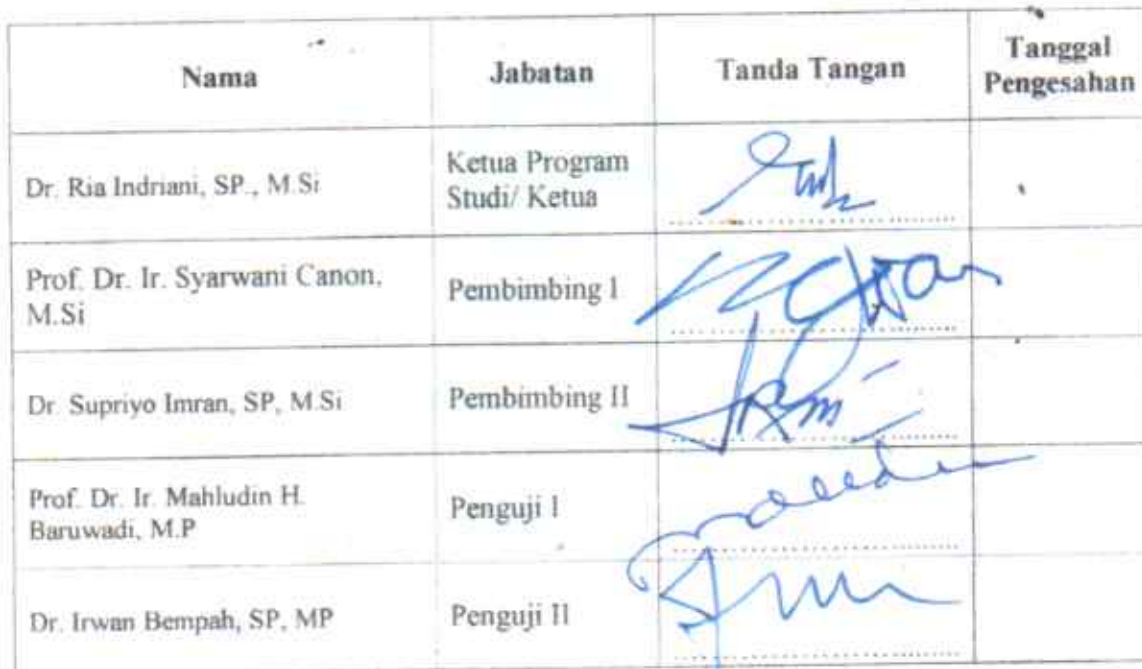 Nama
Jabatan
Tanda Tangan
Tanggal
Pengesahan
Dr. Ria Indriani, SP., M.Si
Ketua Program
Studi/ Ketua
Prof. Dr. Ir. Syarwani Canon,
M.Si
Pembimbing I
Dr. Supriyo Imran, SP, M.Si
Pembimbing II
Prof. Dr. Ir. Mahludin H.
Baruwadi, M.P
Penguji I
Dr. Irwan Bempah, SP, MP
Penguji II